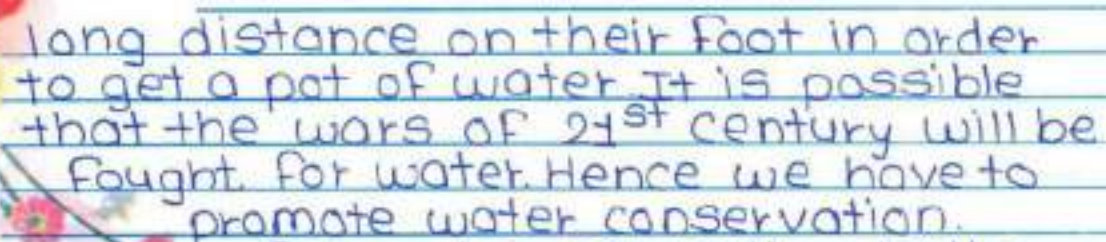 long distance on their foot in order
to get a pot of water. It is possible
that the wars of 21st century will be
fought. for water. Hence we have to
promote water conservation.